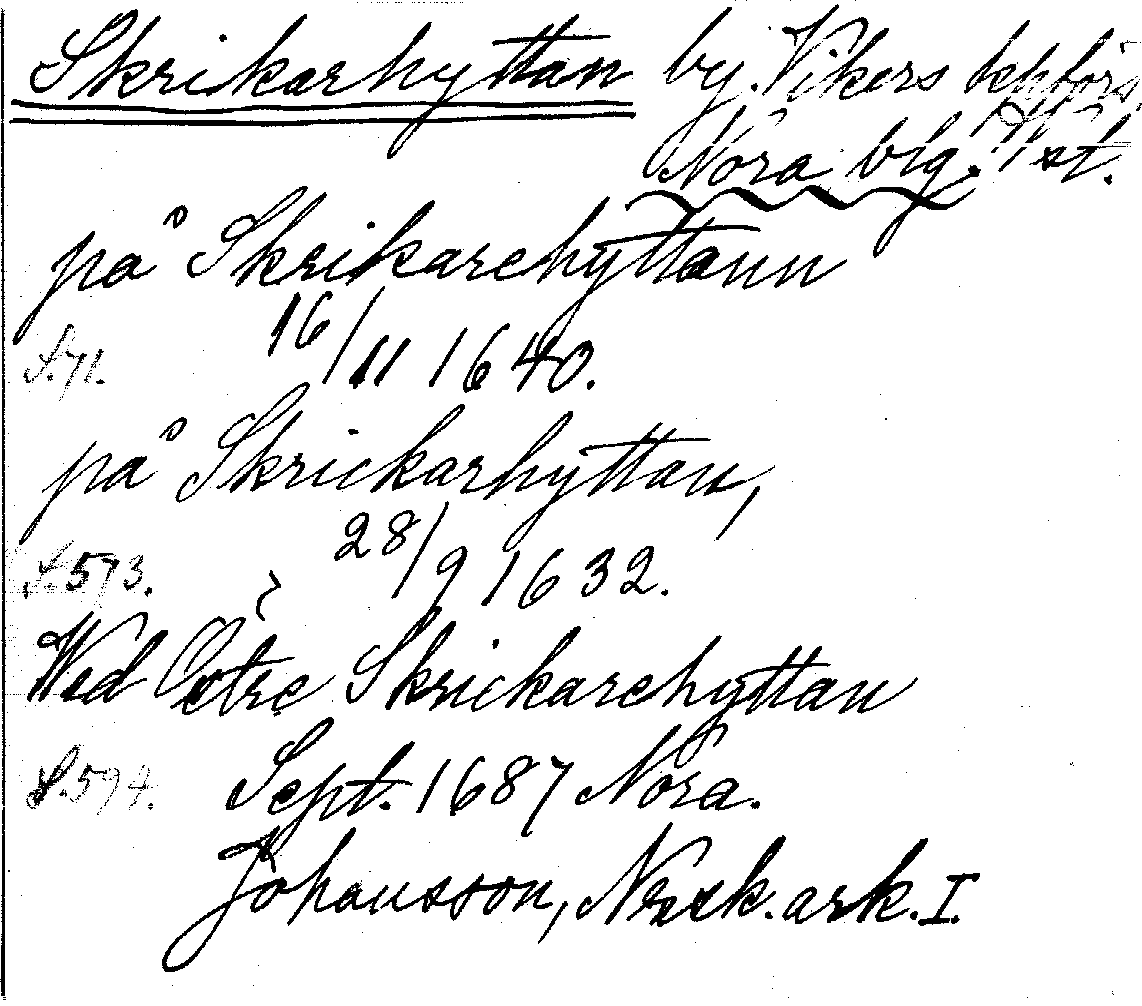 Skrikarhyttan by. Vikers kpförs.
Nora blg. Väst.
på Skrikarehyttann
S.71. 16/11 1640.
på Skrickarhyttan,
S.573. 28/9 1632.
Wed Öetre Skrickarehyttan
S.594. Sept. 1687 Nora.
Johansson, Nerck. ark. I.